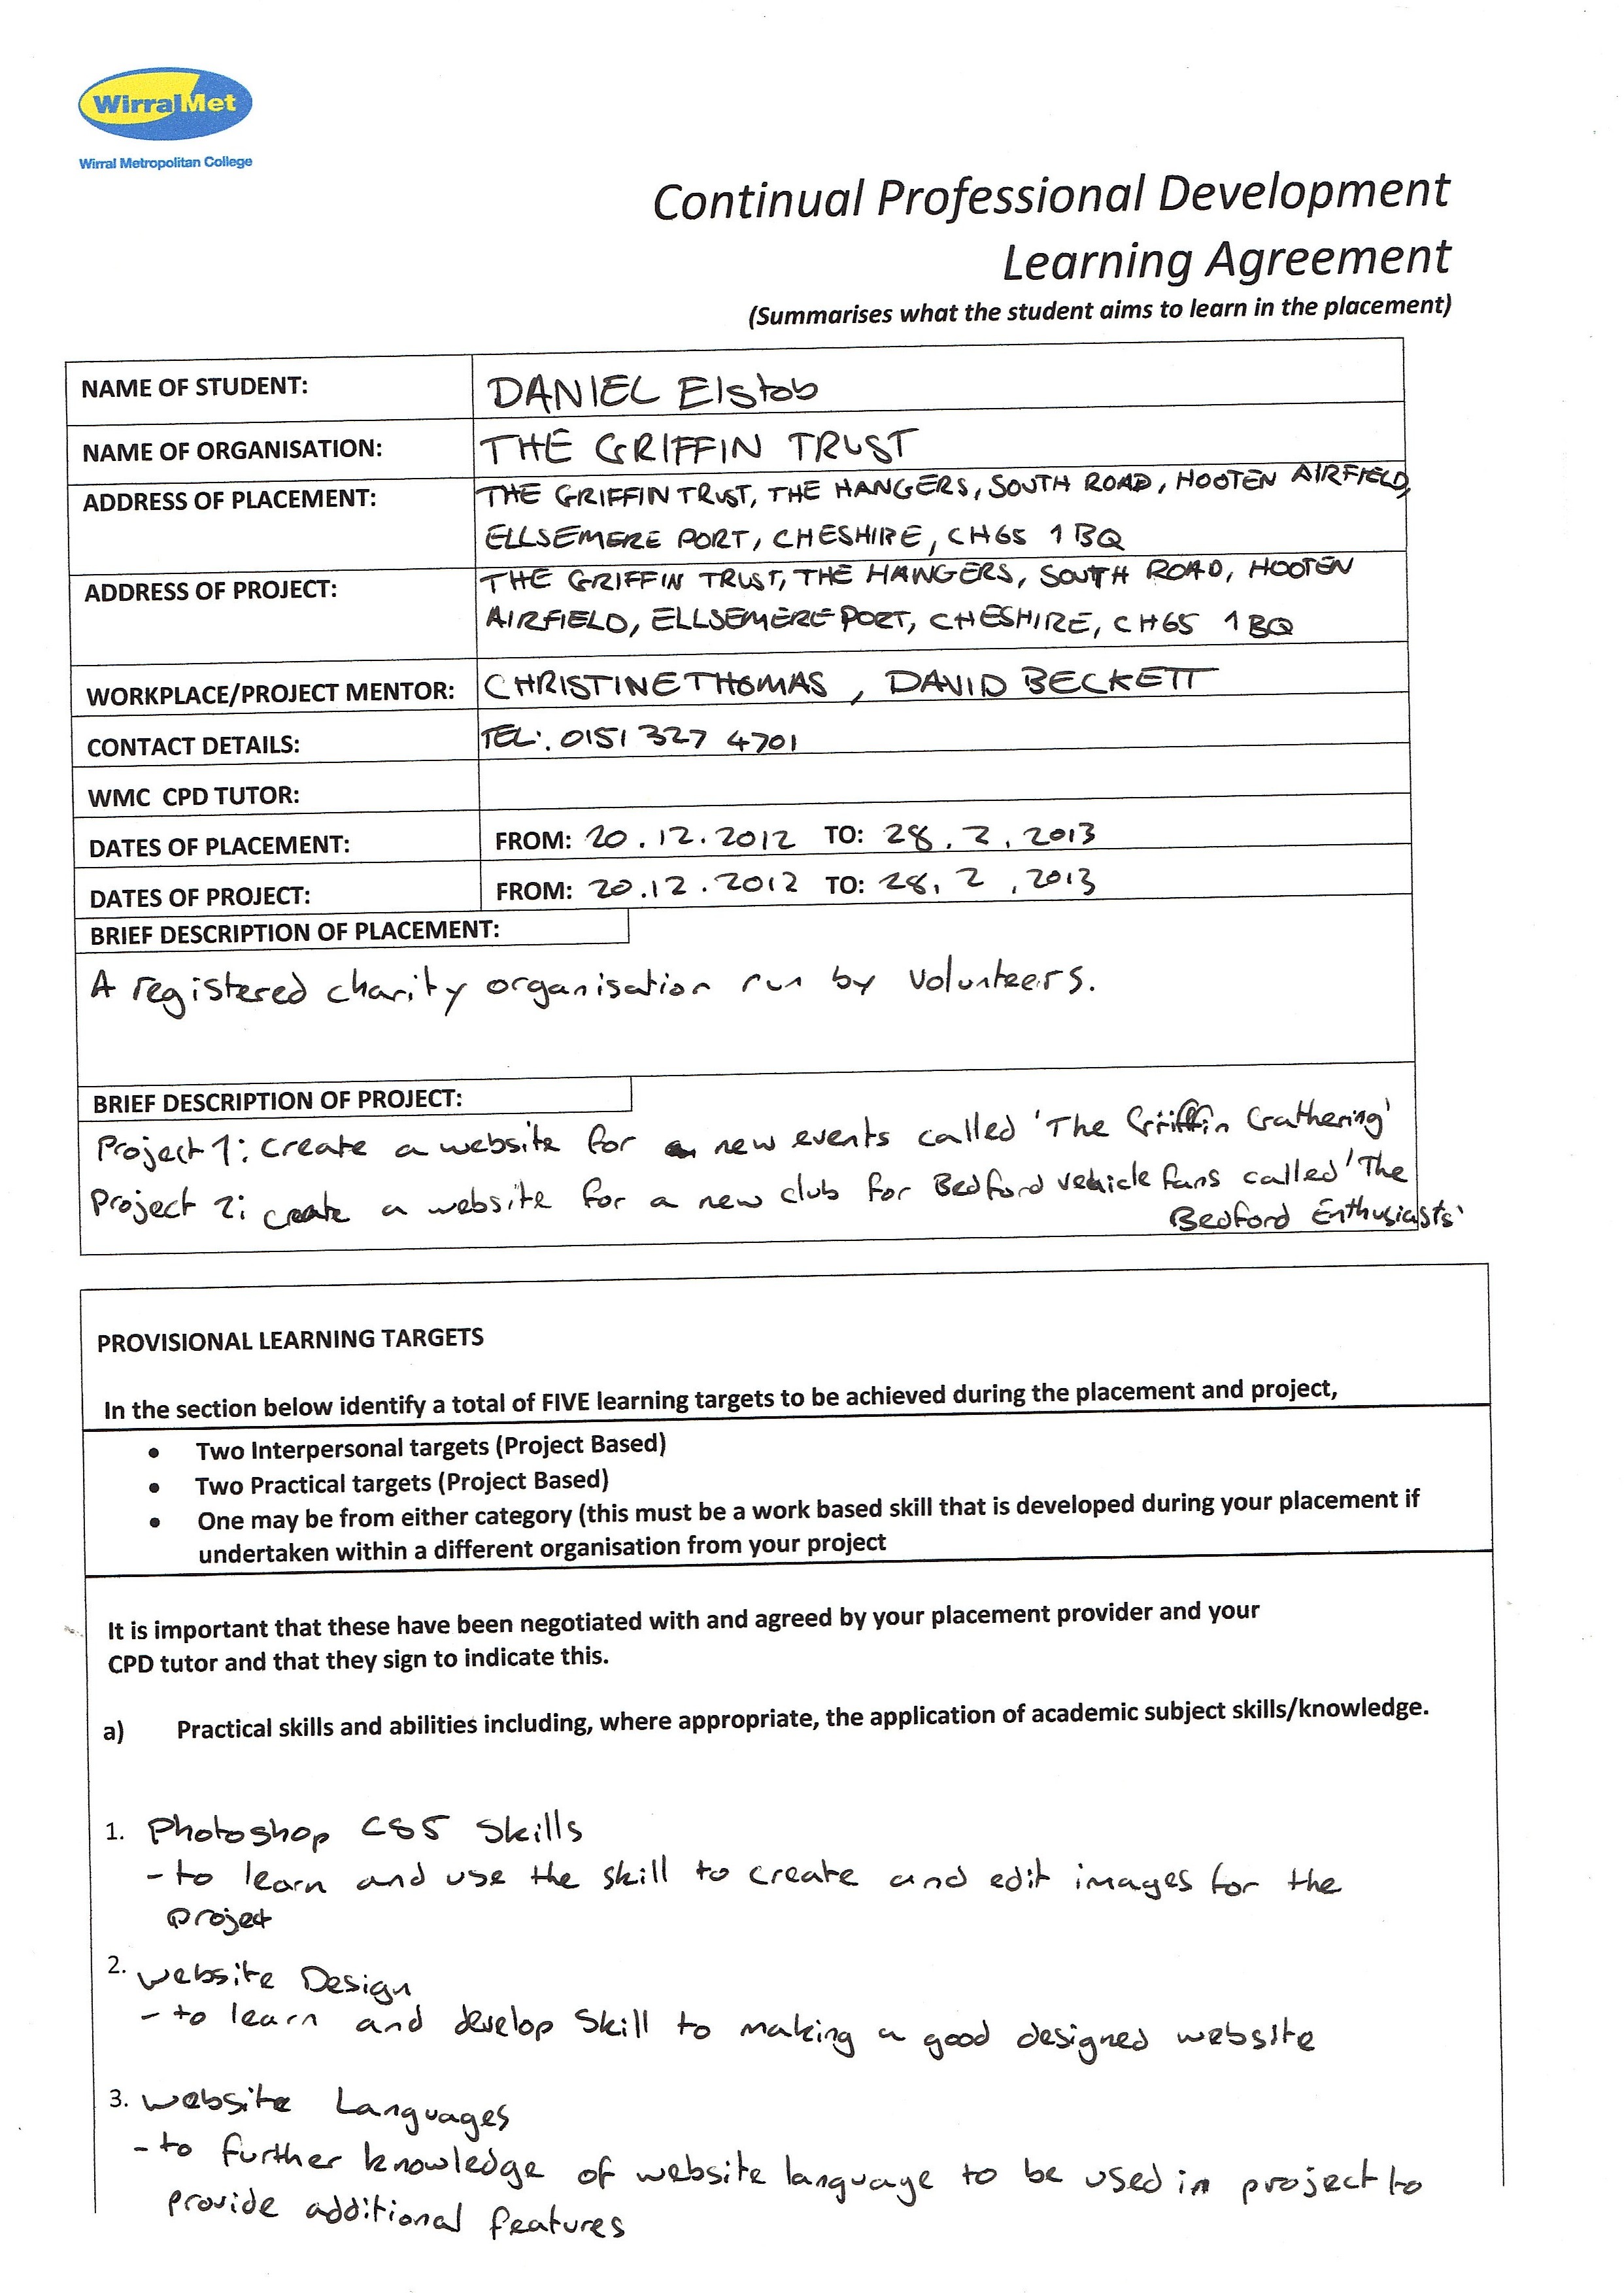 WirralMet
Wirral Metropolitan College
Continual Professional Development
Learning Agreement
(Summarises what the student aims to learn in the placement)
NAME OF STUDENT: DANIEL Elstob
NAME OF ORGANISATION: THE GRIFFIN TRUST
ADDRESS OF PLACEMENT: THE GRIFFIN TRUST, THE HANGERS, SOUTH ROAD, HOOTEN AIRFIELD,
ELLSEMERE PORT, CHESHIRE, CH65 1BQ
ADDRESS OF PROJECT: THE GRIFFIN TRUST, THE HANGERS, SOUTH ROAD, HOOTEN
AIRFIELD, ELLSEMERE PORT, CHESHIRE, CH65 1BQ
WORKPLACE/PROJECT MENTOR: CHRISTINE THOMAS, DAVID BECKETT
CONTACT DETAILS: TEL: 0151 327 4701
WMC CPD TUTOR:
DATES OF PLACEMENT: FROM: 20.12.2012 TO: 28.2.2013
DATES OF PROJECT: FROM: 20.12.2012 TO: 28.2.2013
BRIEF DESCRIPTION OF PLACEMENT:
A registered charity organisation run by volunteers.
BRIEF DESCRIPTION OF PROJECT:
Project 1: create a website for new events called 'The Griffin Gathering'
Project 2: create a website for a new club for Bedford vehicle fans called 'The
Bedford Enthusiasts'
PROVISIONAL LEARNING TARGETS
In the section below identify a total of FIVE learning targets to be achieved during the placement and project,
• Two Interpersonal targets (Project Based)
• Two Practical targets (Project Based)
• One may be from either category (this must be a work based skill that is developed during your placement if
undertaken within a different organisation from your project
It is important that these have been negotiated with and agreed by your placement provider and your
CPD tutor and that they sign to indicate this.
a) Practical skills and abilities including, where appropriate, the application of academic subject skills/knowledge.
1. Photoshop CS5 Skills
- to learn and use the skill to create and edit images for the
project
2. Website Design
- to learn and develop Skill to making a good designed website
3. Website Languages
- to further knowledge of website language to be used in project to
provide additional features